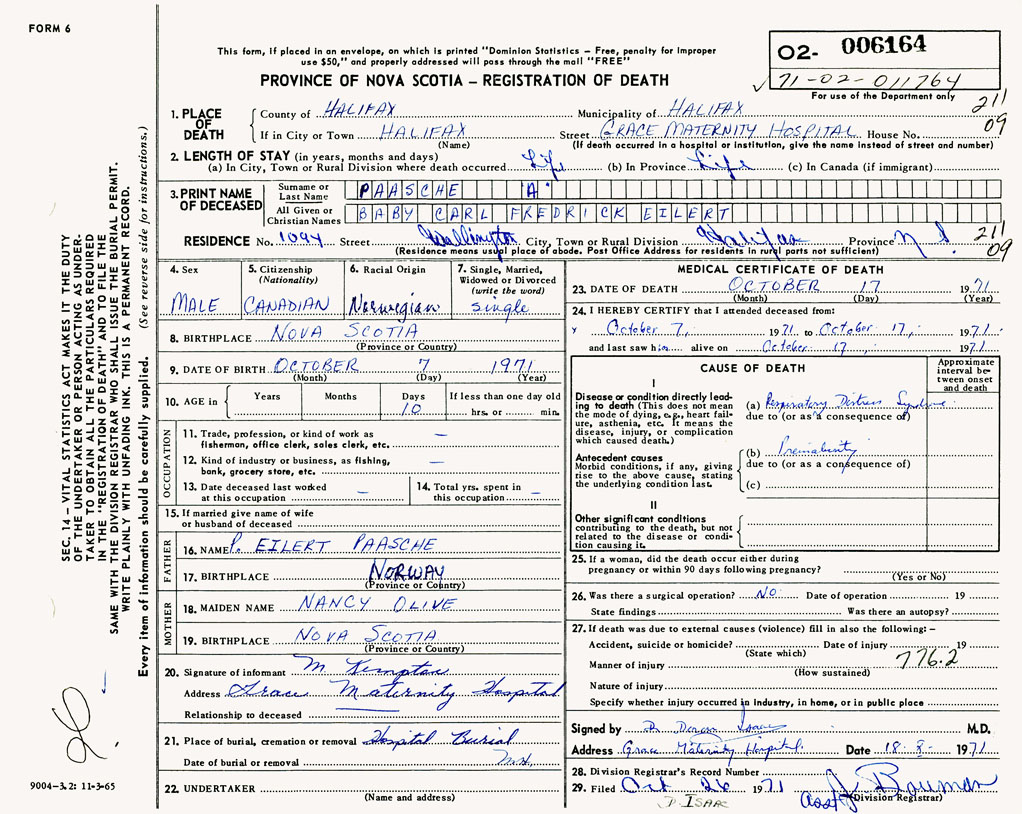 FORM 6
This form, if placed in an envelope, on which is printed "Dominion Statistics – Free, penalty for improper
use $50," and properly addressed will pass through the mail "FREE"
PROVINCE OF NOVA SCOTIA – REGISTRATION OF DEATH
02- 006164
71-02-011764
For use of the Department only
211
09
1. PLACE OF DEATH
County of HALIFAX Municipality of HALIFAX
If in City or Town HALIFAX Street GRACE MATERNITY HOSPITAL House No.
(Name) (If death occurred in a hospital or institution, give the name instead of street and number)
2. LENGTH OF STAY (in years, months and days)
(a) In City, Town or Rural Division where death occurred Life (b) In Province Life (c) In Canada (if immigrant)
3. PRINT NAME OF DECEASED
Surname or Last Name PAASCHE A
All Given or Christian Names BABY CARL FREDRICK EILERT
RESIDENCE No. 1094 Street Wellington City, Town or Rural Division Halifax Province N S.
211
09
(Residence means usual place of abode. Post Office Address for residents in rural parts not sufficient)
4. Sex
MALE
5. Citizenship
(Nationality)
CANADIAN
6. Racial Origin
Norwegian
7. Single, Married,
Widowed or Divorced
(write the word)
single
8. BIRTHPLACE NOVA SCOTIA
(Province or Country)
9. DATE OF BIRTH OCTOBER 7 1971
(Month) (Day) (Year)
10. AGE in Years Months Days If less than one day old
10 hrs. or min.
OCCUPATION
11. Trade, profession, or kind of work as —
fisherman, office clerk, sales clerk, etc.
12. Kind of industry or business, as fishing, —
bank, grocery store, etc.
13. Date deceased last worked
at this occupation —
14. Total yrs. spent in
this occupation —
15. If married give name of wife
or husband of deceased
FATHER
16. NAME P. EILERT PAASCHE
17. BIRTHPLACE NORWAY
(Province or Country)
MOTHER
18. MAIDEN NAME NANCY OLIVE
19. BIRTHPLACE NOVA SCOTIA
(Province or Country)
20. Signature of informant M. Kempton
Address Grace Maternity Hospital
Relationship to deceased
21. Place of burial, cremation or removal Hospital Burial
Date of burial or removal
22. UNDERTAKER
(Name and address)
MEDICAL CERTIFICATE OF DEATH
23. DATE OF DEATH OCTOBER 17 1971
(Month) (Day) (Year)
24. I HEREBY CERTIFY that I attended deceased from:
x October 7, 1971 to October 17, 1971
and last saw him alive on October 17 1971
CAUSE OF DEATH
Approximate
interval be-
tween onset
and death
I
Disease or condition directly lead-
ing to death (This does not mean
the mode of dying, e.g., heart fail-
ure, asthenia, etc. It means the
disease, injury, or complication
which caused death.)
(a) Respiratory Distress Syndrome
due to (or as a consequence of)
Antecedent causes
Morbid conditions, if any, giving
rise to the above cause, stating
the underlying condition last.
(b) Prematurity
due to (or as a consequence of)
(c)
II
Other significant conditions
contributing to the death, but not
related to the disease or condi-
tion causing it.
25. If a woman, did the death occur either during
pregnancy or within 90 days following pregnancy?
(Yes or No)
26. Was there a surgical operation? NO. Date of operation 19
State findings Was there an autopsy?
27. If death was due to external causes (violence) fill in also the following: –
Accident, suicide or homicide? Date of injury 19
(State which) 776.2
Manner of injury
(How sustained)
Nature of injury
Specify whether injury occurred in industry, in home, or in public place
Signed by D. Isaac M.D.
Address Grace Maternity Hospital. Date 18-X- 1971
28. Division Registrar's Record Number
29. Filed Oct 26 1971 Asst J Bauman
(Division Registrar)
D. ISAAC
SEC. 14 – VITAL STATISTICS ACT MAKES IT THE DUTY
OF THE UNDERTAKER OR PERSON ACTING AS UNDER-
TAKER TO OBTAIN ALL THE PARTICULARS REQUIRED
IN THE "REGISTRATION OF DEATH" AND TO FILE THE
SAME WITH THE DIVISION REGISTRAR WHO SHALL ISSUE THE BURIAL PERMIT.
WRITE PLAINLY WITH UNFADING INK. THIS IS A PERMANENT RECORD.
Every item of information should be carefully supplied. (See reverse side for instructions.)
9004-3.2: 11-3-65